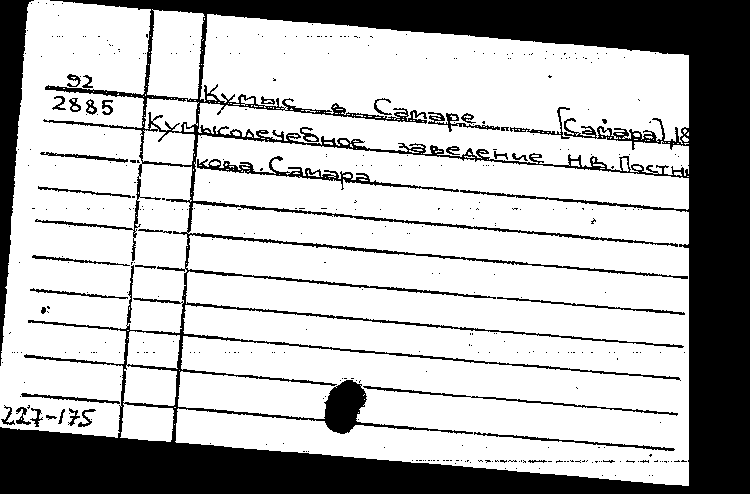 92
2885
Кумыс в Самаре. [Самара], 18
Кумысолечебное заведение Н.В. Постни
кова. Самара.
227-175